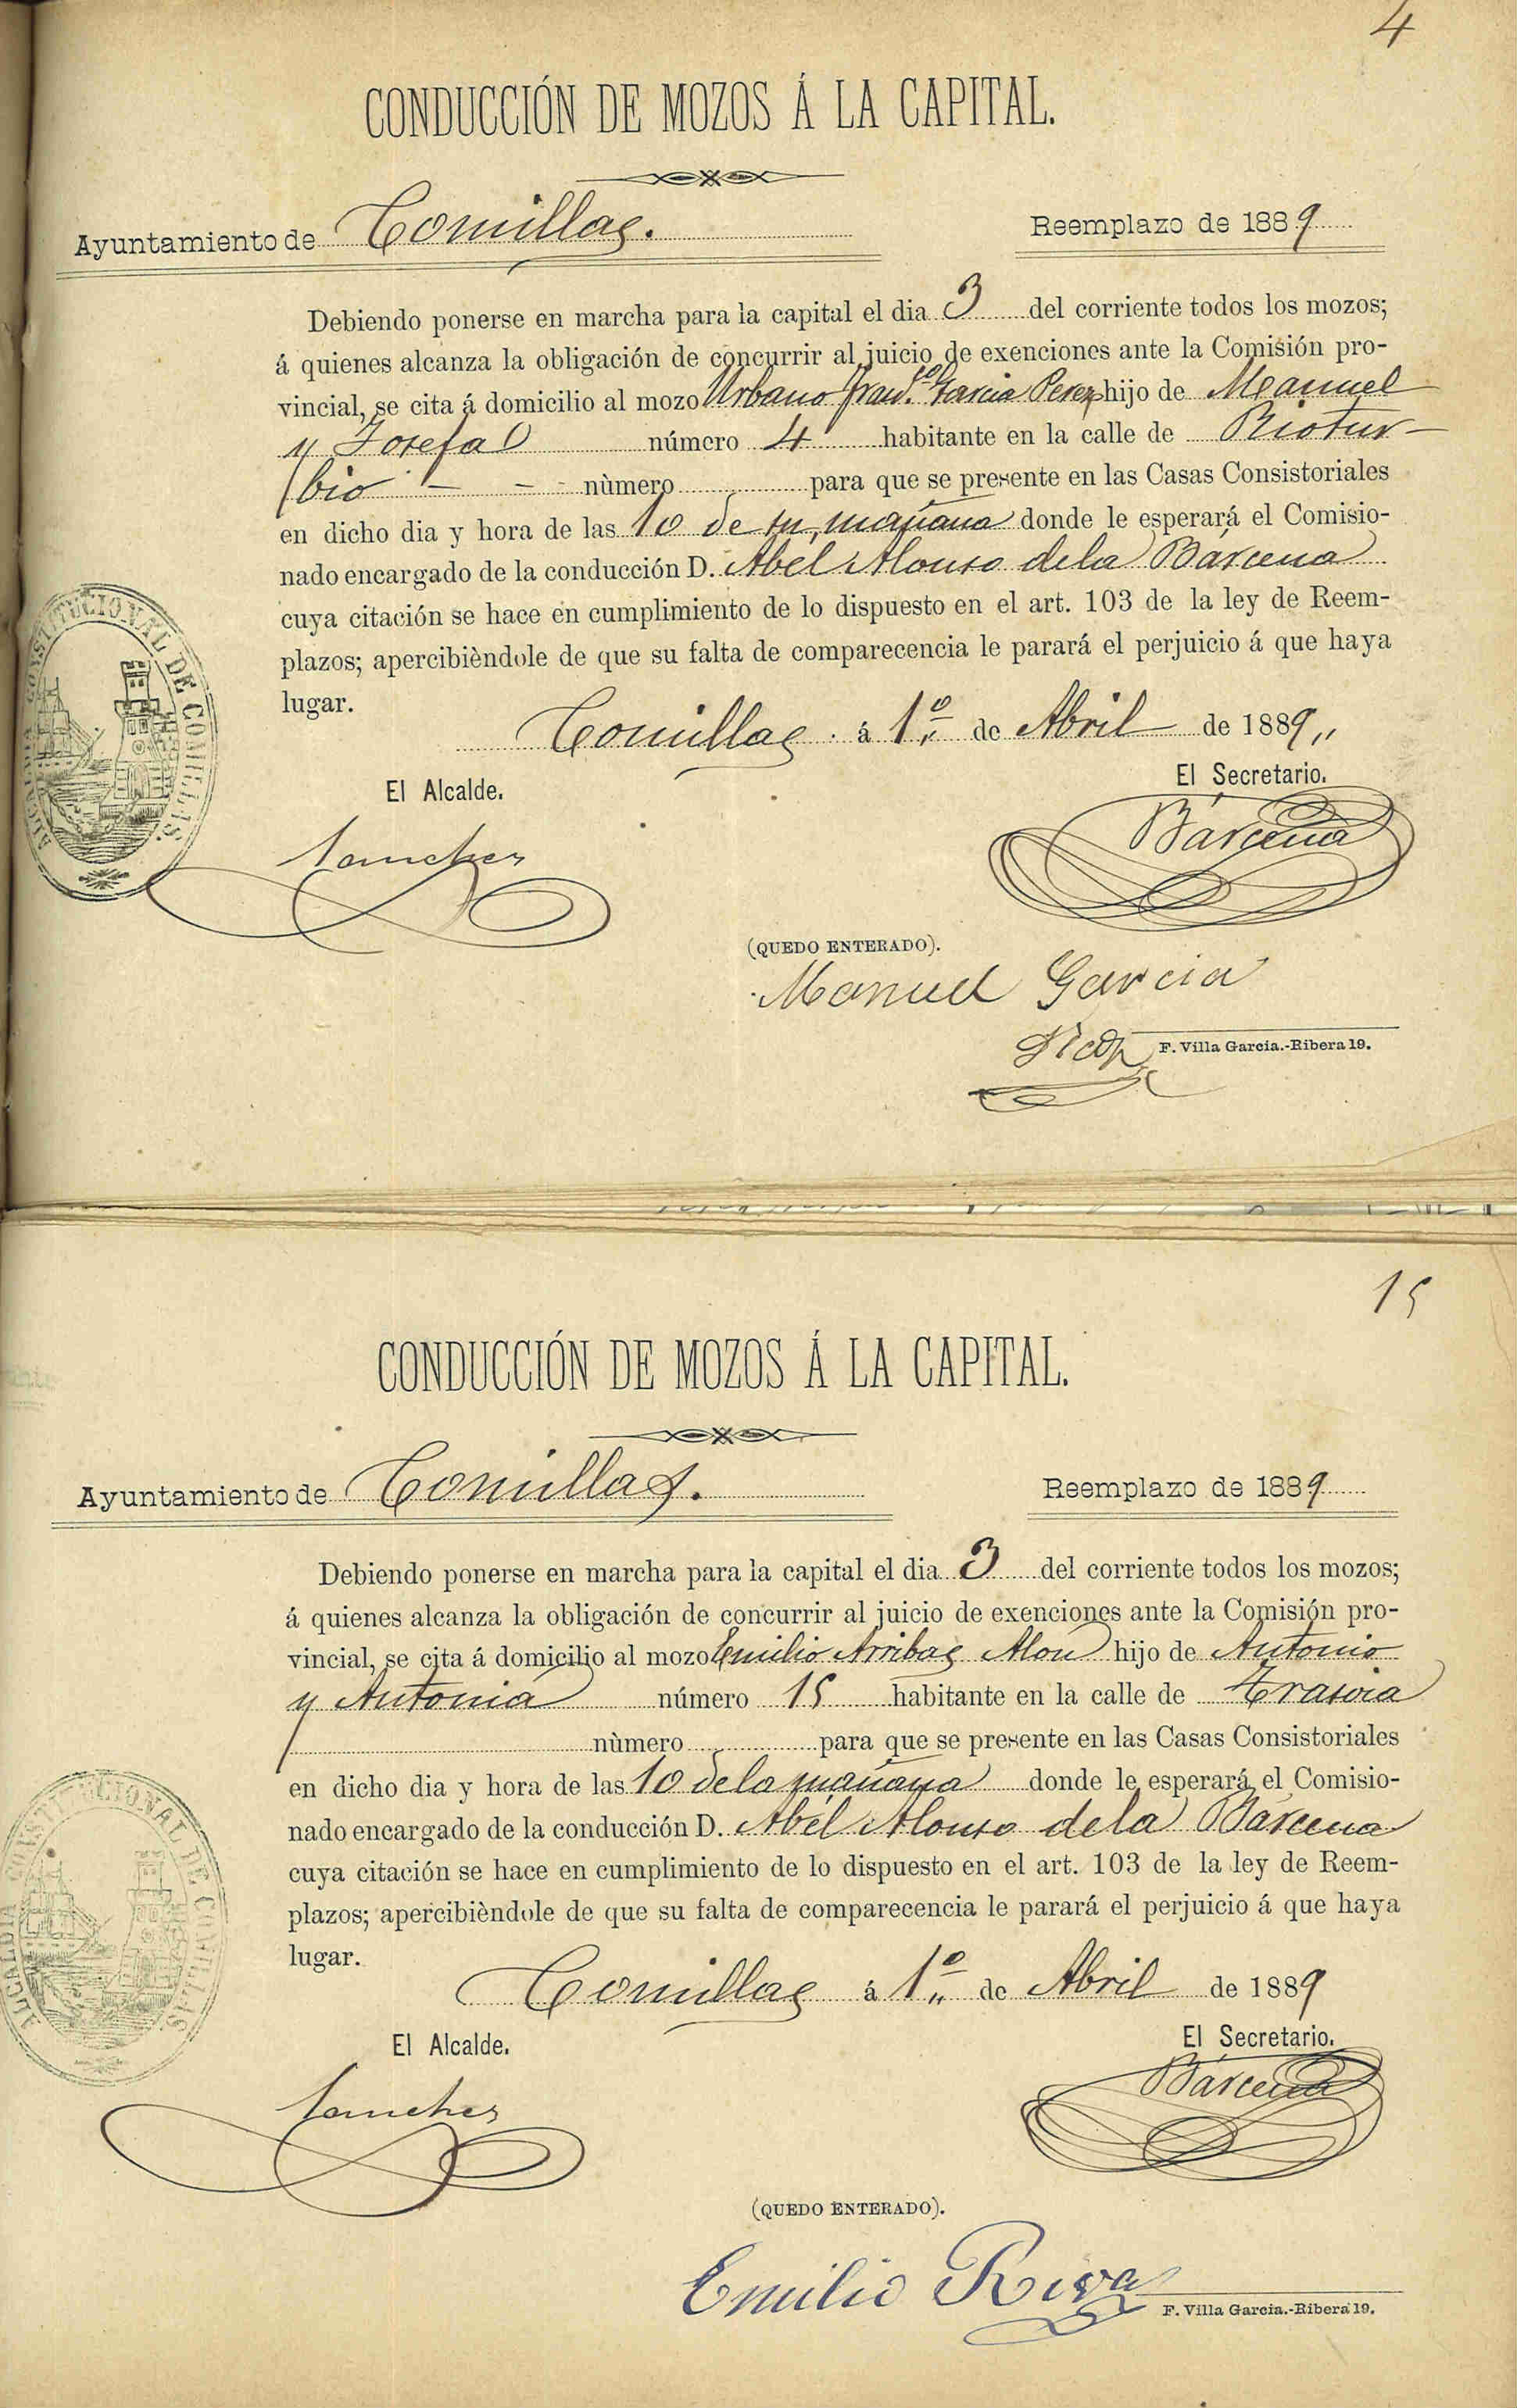 4
CONDUCCIÓN DE MOZOS Á LA CAPITAL.
Ayuntamiento de Comillas. Reemplazo de 1889
Debiendo ponerse en marcha para la capital el dia 3 del corriente todos los mozos;
á quienes alcanza la obligación de concurrir al juicio de exenciones ante la Comisión pro-
vincial, se cita á domicilio al mozo Urbano Franc.co Garcia Perez hijo de Manuel
y Josefa número 4 habitante en la calle de Riotur-
bio - - - nùmero para que se presente en las Casas Consistoriales
en dicho dia y hora de las 10 de su mañana donde le esperará el Comisio-
nado encargado de la conducción D. Abel Alonso de la Bárcena
cuya citación se hace en cumplimiento de lo dispuesto en el art. 103 de la ley de Reem-
plazos; apercibièndole de que su falta de comparecencia le parará el perjuicio á que haya
lugar.
Comillas. á 1.º de Abril de 1889,,
El Alcalde. El Secretario.
Sanchez Bárcena
ALCALDIA CONSTITUCIONAL DE COMILLAS.
(QUEDO ENTERADO).
Manuel Garcia
F. Villa Garcia.-Ribera 19.
15
CONDUCCIÓN DE MOZOS Á LA CAPITAL.
Ayuntamiento de Comillas. Reemplazo de 1889
Debiendo ponerse en marcha para la capital el dia 3 del corriente todos los mozos;
á quienes alcanza la obligación de concurrir al juicio de exenciones ante la Comisión pro-
vincial, se cita á domicilio al mozo Emilio Arribas Alon hijo de Antonio
y Antonia número 15 habitante en la calle de Trasvia
nùmero para que se presente en las Casas Consistoriales
en dicho dia y hora de las 10 de la mañana donde le esperará el Comisio-
nado encargado de la conducción D. Abel Alonso de la Bárcena
cuya citación se hace en cumplimiento de lo dispuesto en el art. 103 de la ley de Reem-
plazos; apercibièndole de que su falta de comparecencia le parará el perjuicio á que haya
lugar.
Comillas á 1.º de Abril de 1889
El Alcalde. El Secretario.
Sanchez Bárcena
ALCALDIA CONSTITUCIONAL DE COMILLAS.
(QUEDO ENTERADO).
Emilio Rivas
F. Villa Garcia.-Ribera 19.